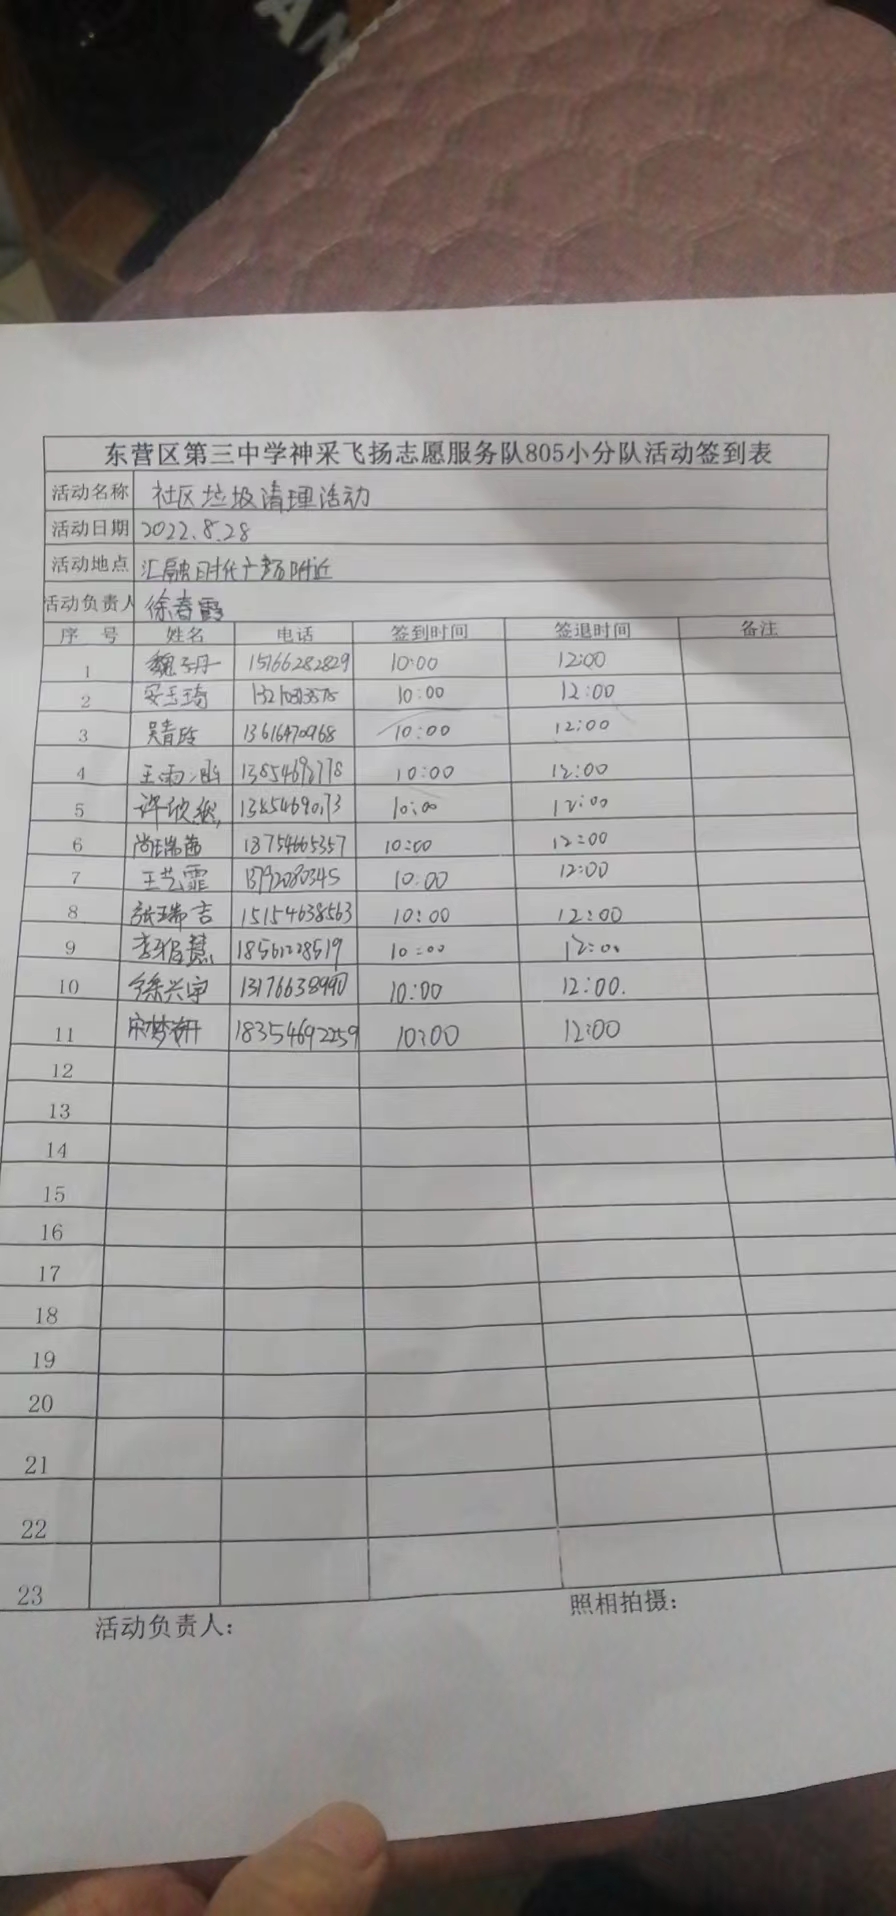 AN
东营区第三中学神采飞扬志愿服务队805小分队活动签到表
活动名称 社区垃圾清理活动
活动日期 2022.8.28
活动地点 汇融时代广场附近
活动负责人 徐春霞
序号 姓名 电话 签到时间 签退时间 备注
1 魏子丹 15166282829 10:00 12:00
2 安玉琦 10:00 12:00
3 吴青玲 13616470968 10:00 12:00
4 王雨涵 10:00 12:00
5 许欣然 10:00 12:00
6 尚瑞茜 18754665357 10:00 12:00
7 王艺霏 13792080345 10:00 12:00
8 张瑞吉 15154638563 10:00 12:00
9 李雅慧 18561228519 10:00 12:00
10 徐兴宇 10:00 12:00.
11 宋梦妍 18354692259 10:00 12:00
12
13
14
15
16
17
18
19
20
21
22
23
活动负责人: 照相拍摄: